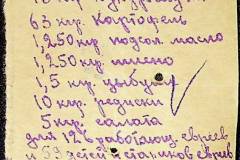 63 кгр. картофель
1,250 кгр. подсол. масло
1,250 кгр. пшено
1,5 кгр. цыбули
10 кгр. редиски
5 кгр. салата
для 126 работающ. евреев
и 53 детей